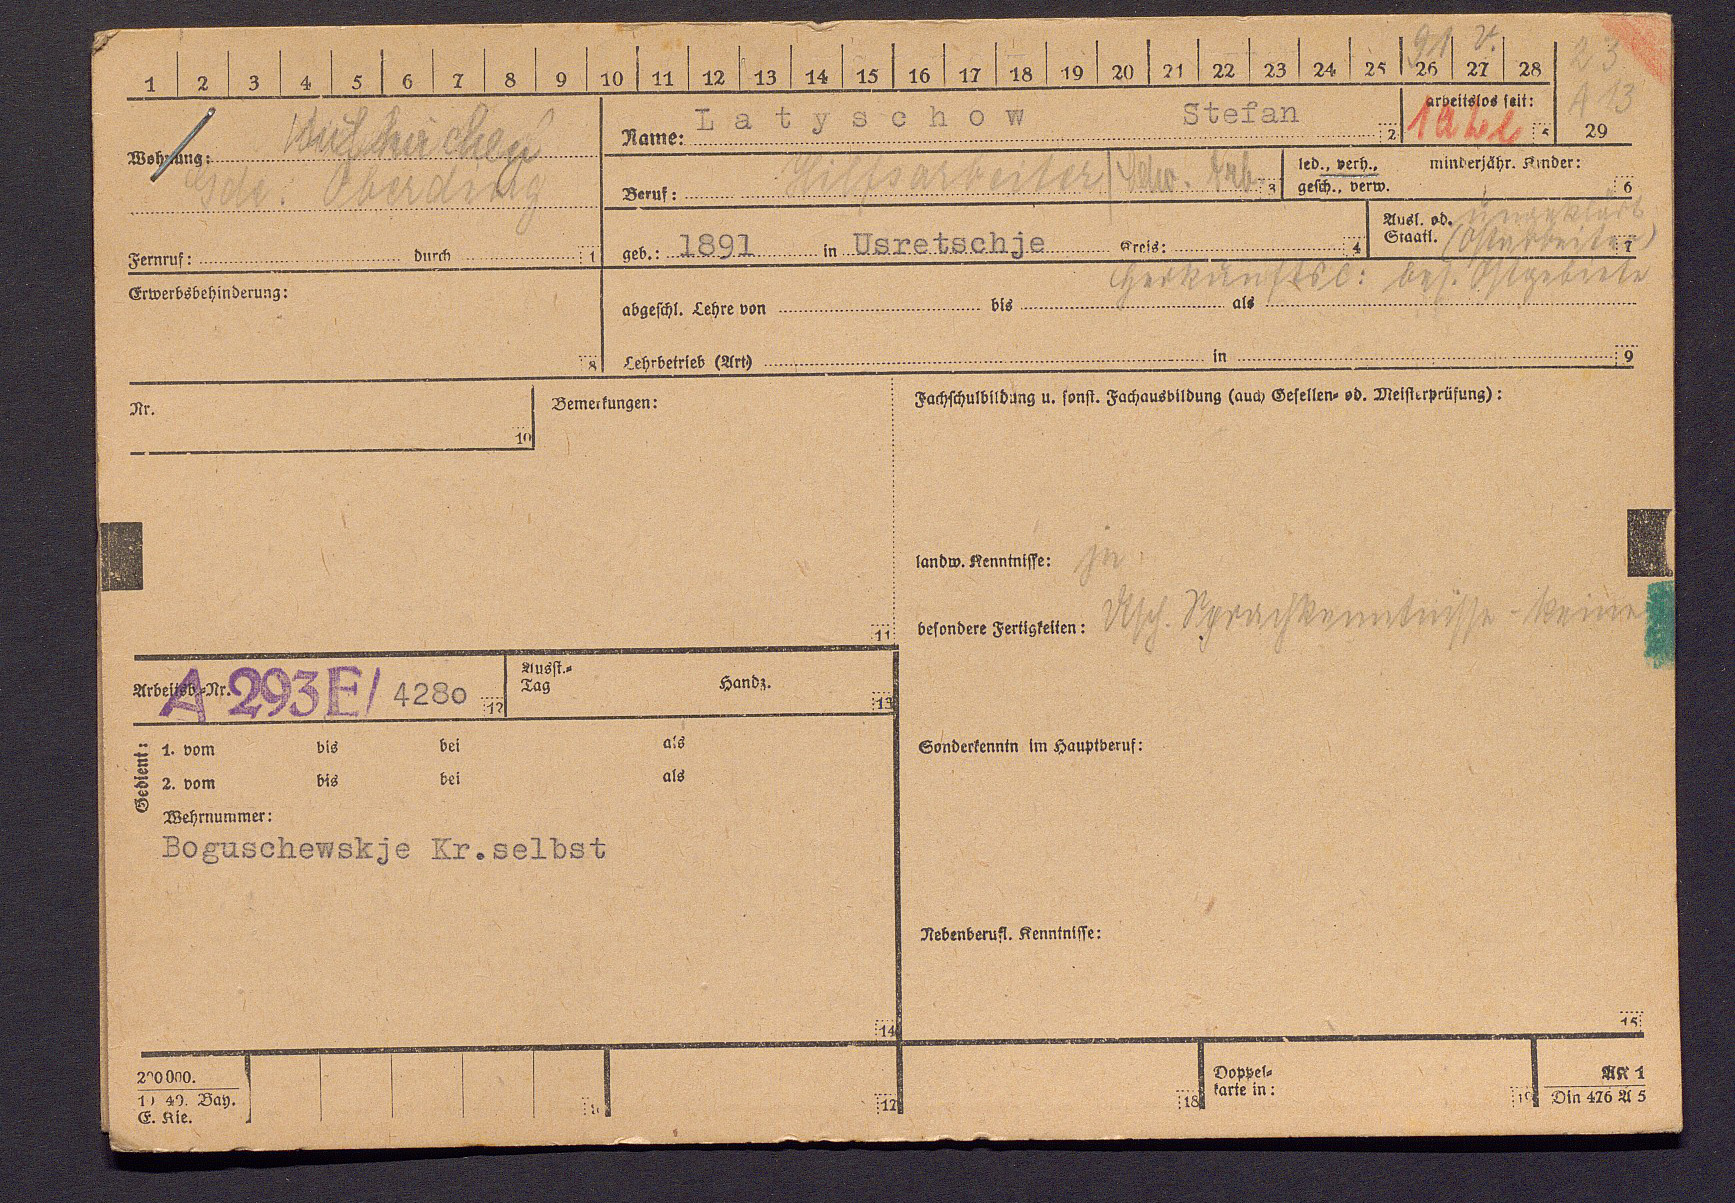 1 2 3 4 5 6 7 8 9 10 11 12 13 14 15 16 17 18 19 20 21 22 23 24 25 26 27 28
91 V.
23
A 13
29
Wohnung:
Gde. Oberding
Fernruf: durch 1
Name: Latyschow Stefan 2
arbeitslos seit: 5
Beruf: Hilfsarbeiter 3
led., verh., gesch., verw.
minderjähr. Kinder: 6
geb.: 1891 in Usretschje Kreis: 4
Ausl. od. Staatl. ungeklärt (Ostarbeiter) 7
Herkunftsl: bes. Ostgebiete
Erwerbsbehinderung: 8
abgeschl. Lehre von bis als
Lehrbetrieb (Art) in 9
Nr. 10
Bemerkungen: 11
Fachschulbildung u. sonst. Fachausbildung (auch Gesellen- od. Meisterprüfung):
landw. Kenntnisse: ja
besondere Fertigkeiten: Dtsch. Sprachkenntnisse - keine
Arbeitsb.-Nr. A 293E/ 4280 12
Ausst.-Tag Handz. 13
Gedient:
1. vom bis bei als
2. vom bis bei als
Wehrnummer:
Boguschewskje Kr.selbst
14
Sonderkenntn im Hauptberuf:
Nebenberufl. Kenntnisse:
15
200000.
10 40. Bay.
E. Kie.
17
18
Doppel-
karte in: 19
AK 1
Din 476 A 5